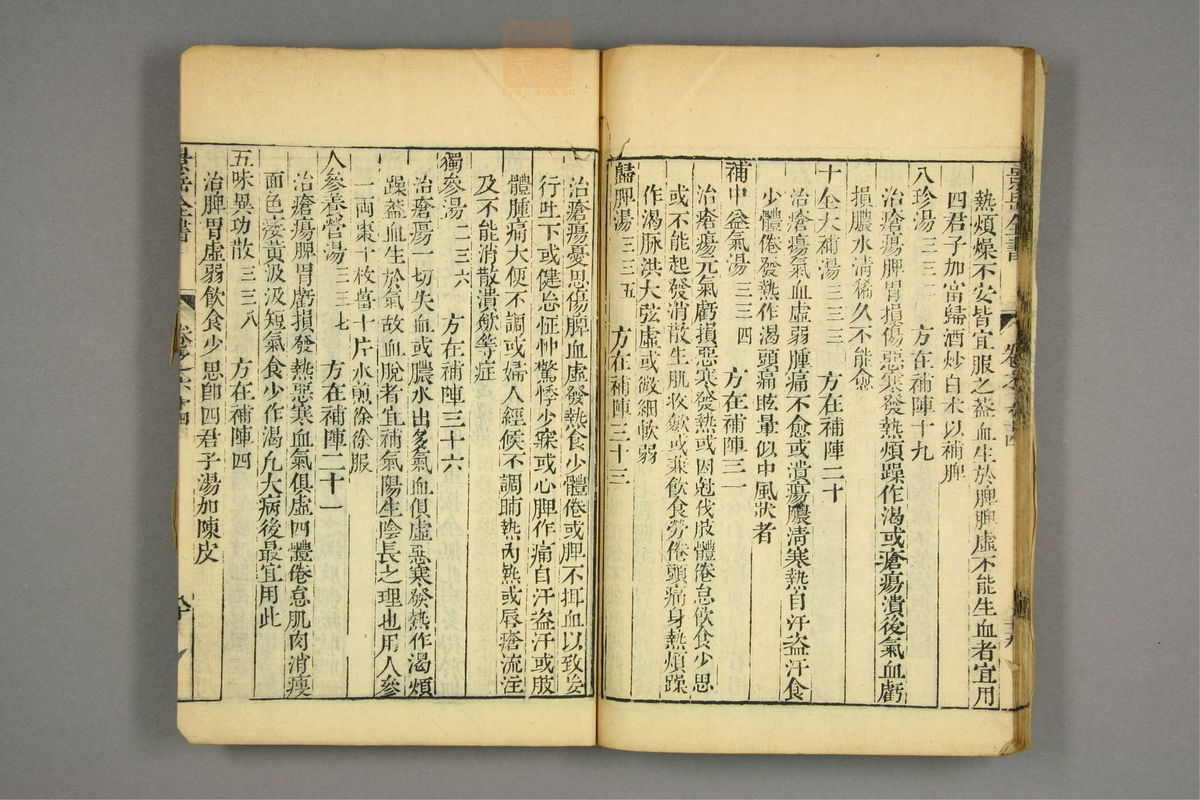 景岳全書
卷之六十四
熱煩燥不安皆宜服之葢血生於脾脾虛不能生血者宜用
四君子加當歸酒炒白朮以補脾
八珍湯三三二 方在補陣十九
治瘡瘍脾胃損傷惡寒發熱煩躁作渴或瘡瘍潰後氣血虧
損膿水清稀久不能愈
十全大補湯三三三 方在補陣二十
治瘡瘍氣血虛弱腫痛不愈或潰瘍膿清寒熱自汗盜汗食
少體倦發熱作渴頭痛眩暈似中風狀者
補中益氣湯三三四 方在補陣三一
治瘡瘍元氣虧損惡寒發熱或因尅伐肢體倦怠飲食少思
或不能起發消散生肌收歛或兼飲食勞倦頭痛身熱煩躁
作渴脉洪大弦虛或微細軟弱
歸脾湯三三五 方在補陣三十三
治瘡瘍憂思傷脾血虛發熱食少體倦或脾不攝血以致妄
行吐下或健忘怔忡驚悸少寐或心脾作痛自汗盜汗或肢
體腫痛大便不調或婦人經候不調晡熱內熱或唇瘡流注
及不能消散潰歛等症
獨參湯二三六 方在補陣三十六
治瘡瘍一切失血或膿水出多氣血俱虛惡寒發熱作渴煩
躁葢血生於氣故血脫者宜補氣陽生陰長之理也用人參
一兩棗十枚薑十片水煎徐徐服
人參養營湯三三七 方在補陣二十一
治瘡瘍脾胃虧損發熱惡寒血氣俱虛四體倦怠肌肉消瘦
面色痿黃汲汲短氣食少作渴凡大病後最宜用此
五味異功散三三八 方在補陣四
治脾胃虛弱飲食少思卽四君子湯加陳皮
景岳全書
卷之六十四